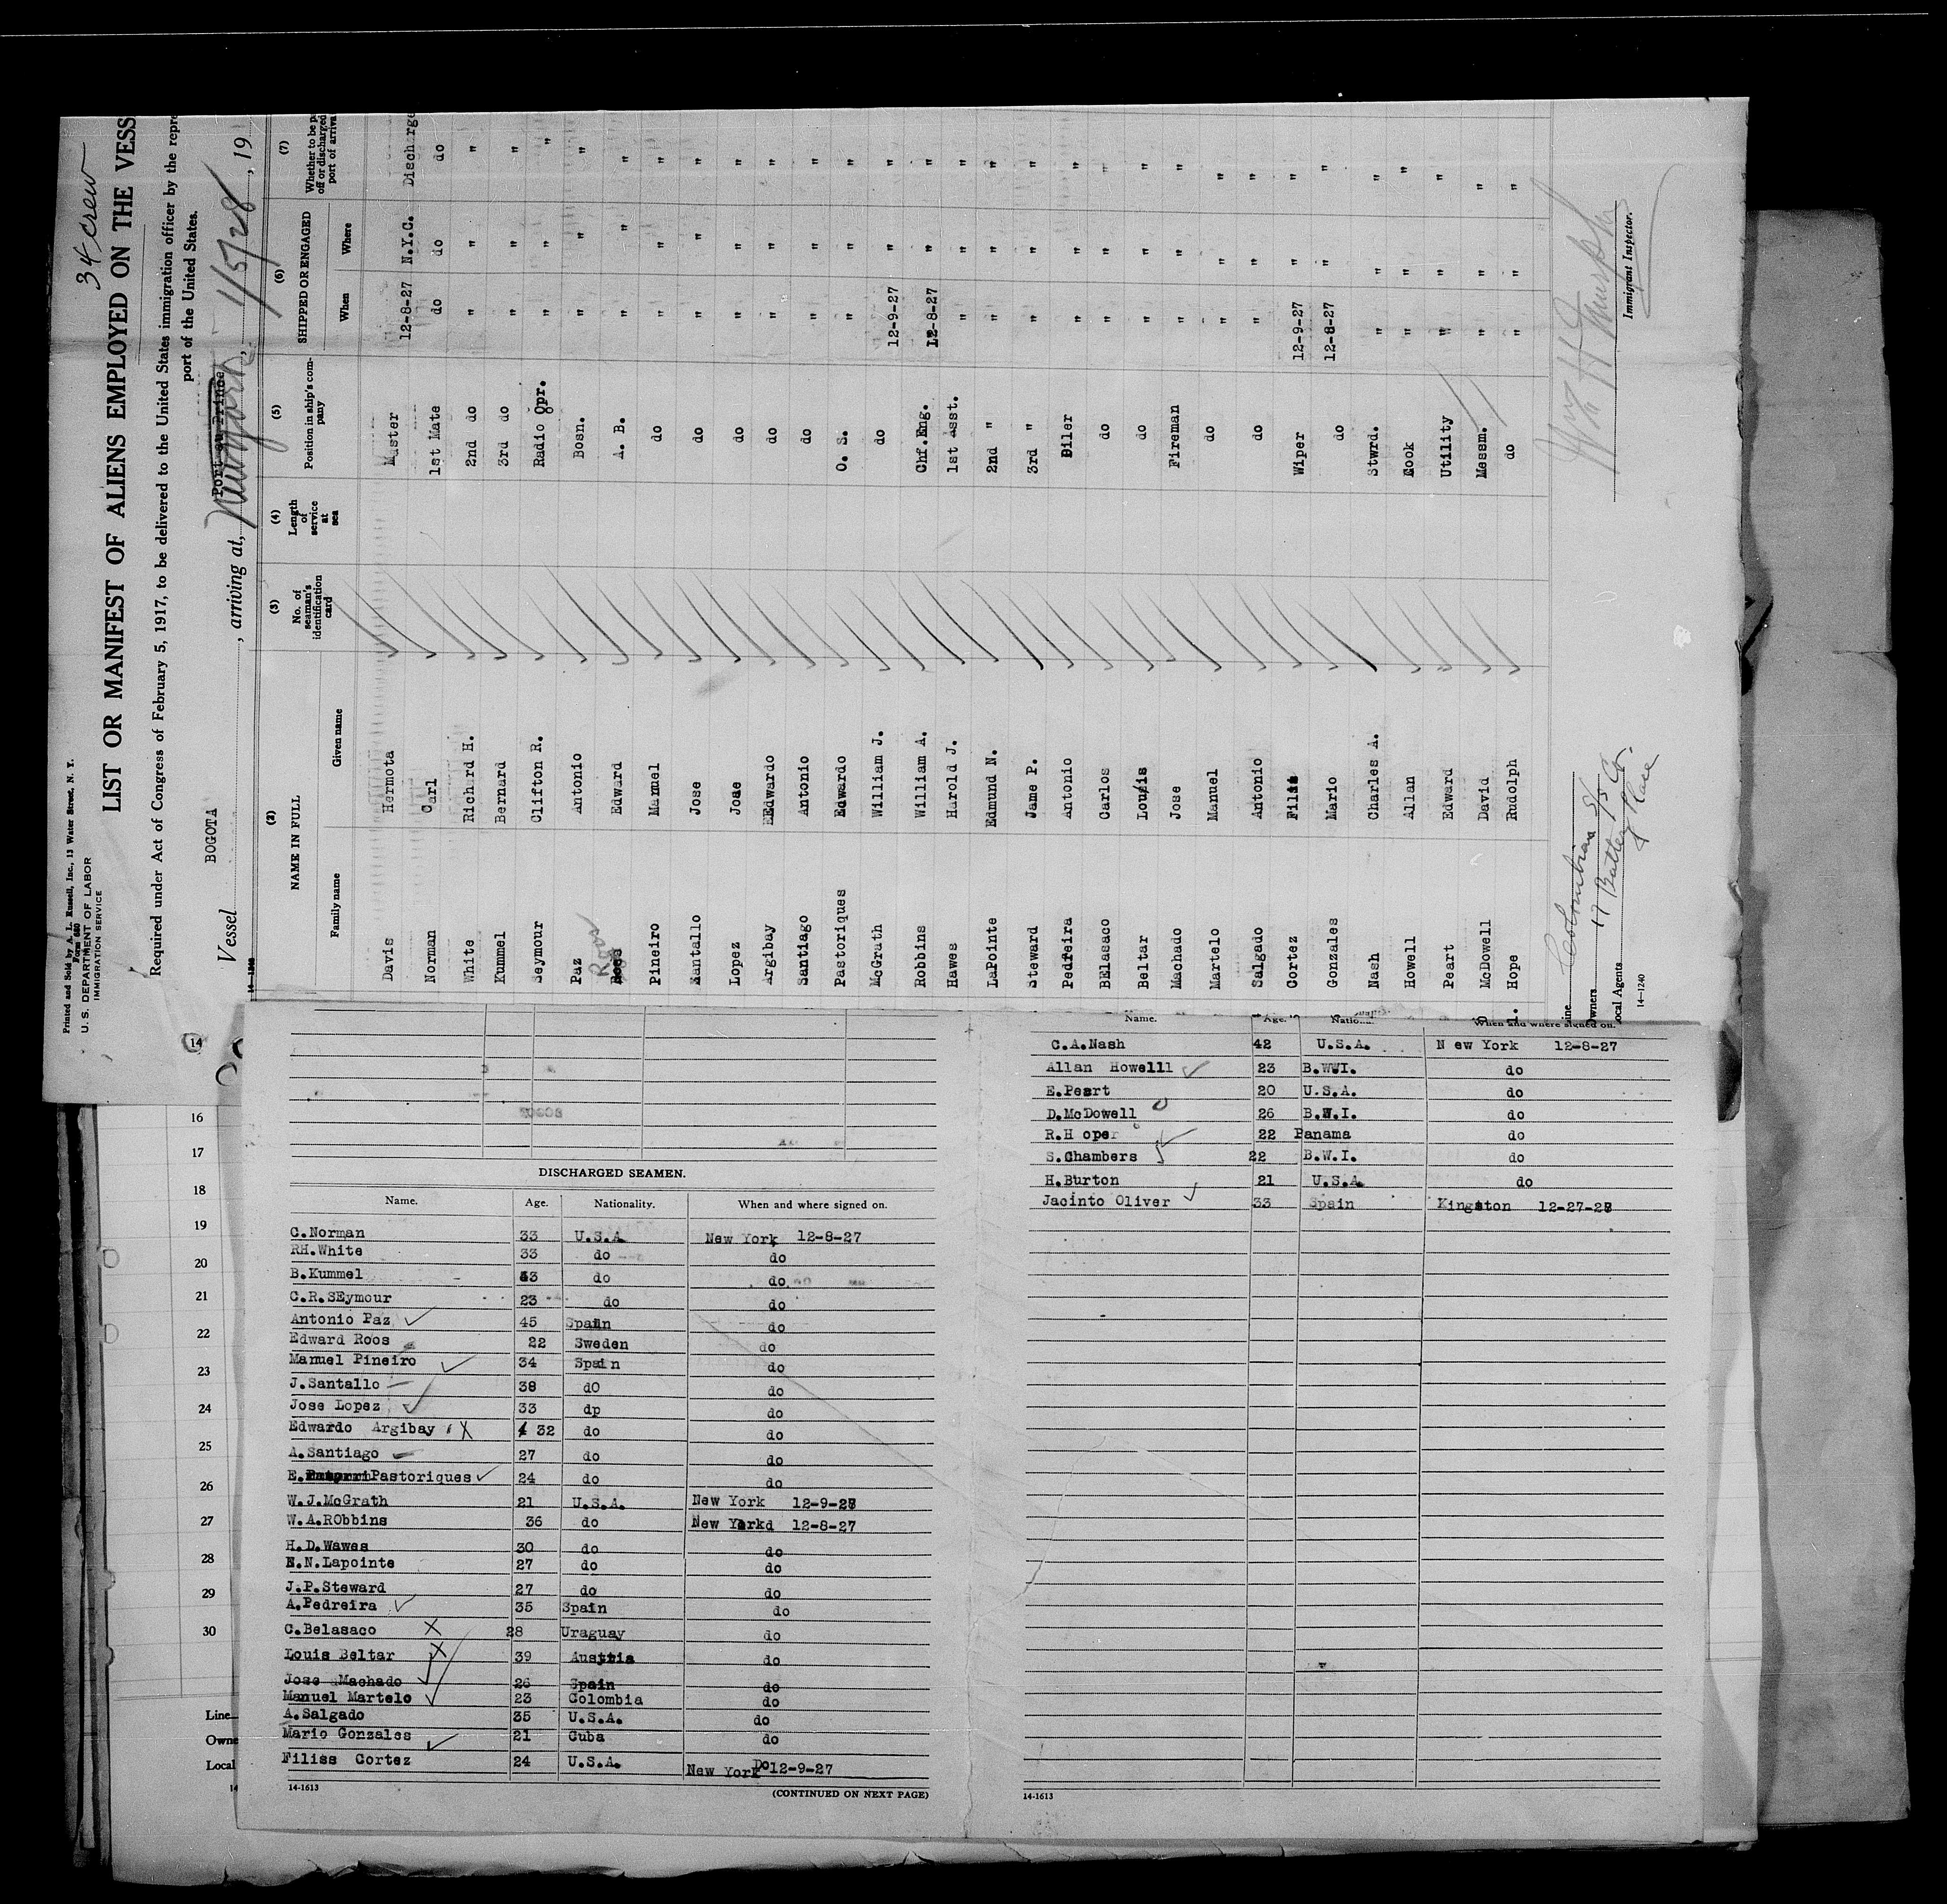 34 crew
Printed and Sold by A. L. Russell, Inc., 13 Water Street, N. Y.
Form 680
U. S. DEPARTMENT OF LABOR
IMMIGRATION SERVICE
LIST OR MANIFEST OF ALIENS EMPLOYED ON THE VESS
Required under Act of Congress of February 5, 1917, to be delivered to the United States immigration officer by the repre
port of the United States.
Vessel BOGOTA , arriving at, Port au Prince New York 1/5/28 , 19
14-1240
(2) (3) (4) (5) (6) (7)
NAME IN FULL No. of seaman's identification card Length of service at sea Position in ship's company SHIPPED OR ENGAGED Whether to be p off or discharged port of arriva
Family name Given name When Where
Davis Hermota Master
Norman Carl 1st Mate 12-8-27 N.Y.C. Discharge
White Richard H. 2nd do do do do
Kummel Bernard 3rd do " " "
Seymour Clifton R. Radio Opr. " " "
Paz Antonio Bosn. " " "
Roos Roos Edward A. B. " " "
Pineiro Manuel do " " "
Santallo Jose do " " "
Lopez Jose do " " "
Argibay EEdwardo do " " "
Santiago Antonio do " " "
Pastoriques Edwardo O. S. " " "
McGrath William J. do 12-9-27 " "
Robbins William A. Chf.Eng. 12-8-27 " "
Hawes Harold J. 1st Asst. " " "
LaPointe Edmund N. 2nd " " " "
Steward Jame P. 3rd " " " "
Pedreira Antonio Oiler " " "
BElasaco Carlos do " " "
Beltar Louis do " " "
Machado Jose Fireman " " "
Martelo Manuel do " " "
Salgado Antonio do " " "
Cortez Wiper 12-9-27 " "
Gonzales Mario do 12-8-27 " "
Nash Charles A. Stwrd. " " "
Howell Allan Cook " " "
Peart Edward Utility " " "
McDowell David Messm. " " "
Hope Rudolph do " " "
Line Colombian S/S Co.
Owners 17 Battery Place
Local Agents
14-1240
Wm H Murphy
Immigrant Inspector.
14
16
17
18
19
20
21
22
23
24
25
26
27
28
29
30
Line
Owne
Local
14
DISCHARGED SEAMEN.
Name. Age. Nationality. When and where signed on.
C.Norman 33 U.S.A New York 12-8-27
RH.White 33 do do
B.Kummel 33 do do
C.R.SEymour 23 do do
Antonio Paz 45 Spain do
Edward Roos 22 Sweden do
Manuel Pineiro 34 Spain do
J.Santallo 38 dO do
Jose Lopez 33 dp do
Edwardo Argibay 32 do do
A.Santiago 27 do do
E. Pastoriques 24 do do
W.J.McGrath 21 U.S.A. New York 12-9-27
W.A.RObbins 36 do New Yorkd 12-8-27
H.D.Wawes 30 do do
E.N.Lapointe 27 do do
J.P.Steward 27 do do
A.Pedreira 35 Spain do
C.Belasaco 28 Uraguay do
Louis Beltar 39 Austria do
Jose Machado 26 Spain do
Manuel Martelo 23 Colombia do
A.Salgado 35 U.S.A. do
Mario Gonzales 21 Cuba do
Filiss Cortez 24 U.S.A. New York Do12-9-27
14-1613 (CONTINUED ON NEXT PAGE)
Name. Age. When and where signed on.
C.A.Nash 42 U.S.A. N ew York 12-8-27
Allan Howelll 23 B.WWI. do
E.Peart 20 U.S.A. do
D.McDowell 26 B.W.I. do
R.H oper 22 Panama do
S.Chambers 22 B.W.I. do
H.Burton 21 U.S.A do
Jacinto Oliver 33 Spain Kingston 12-27-27
14-1613